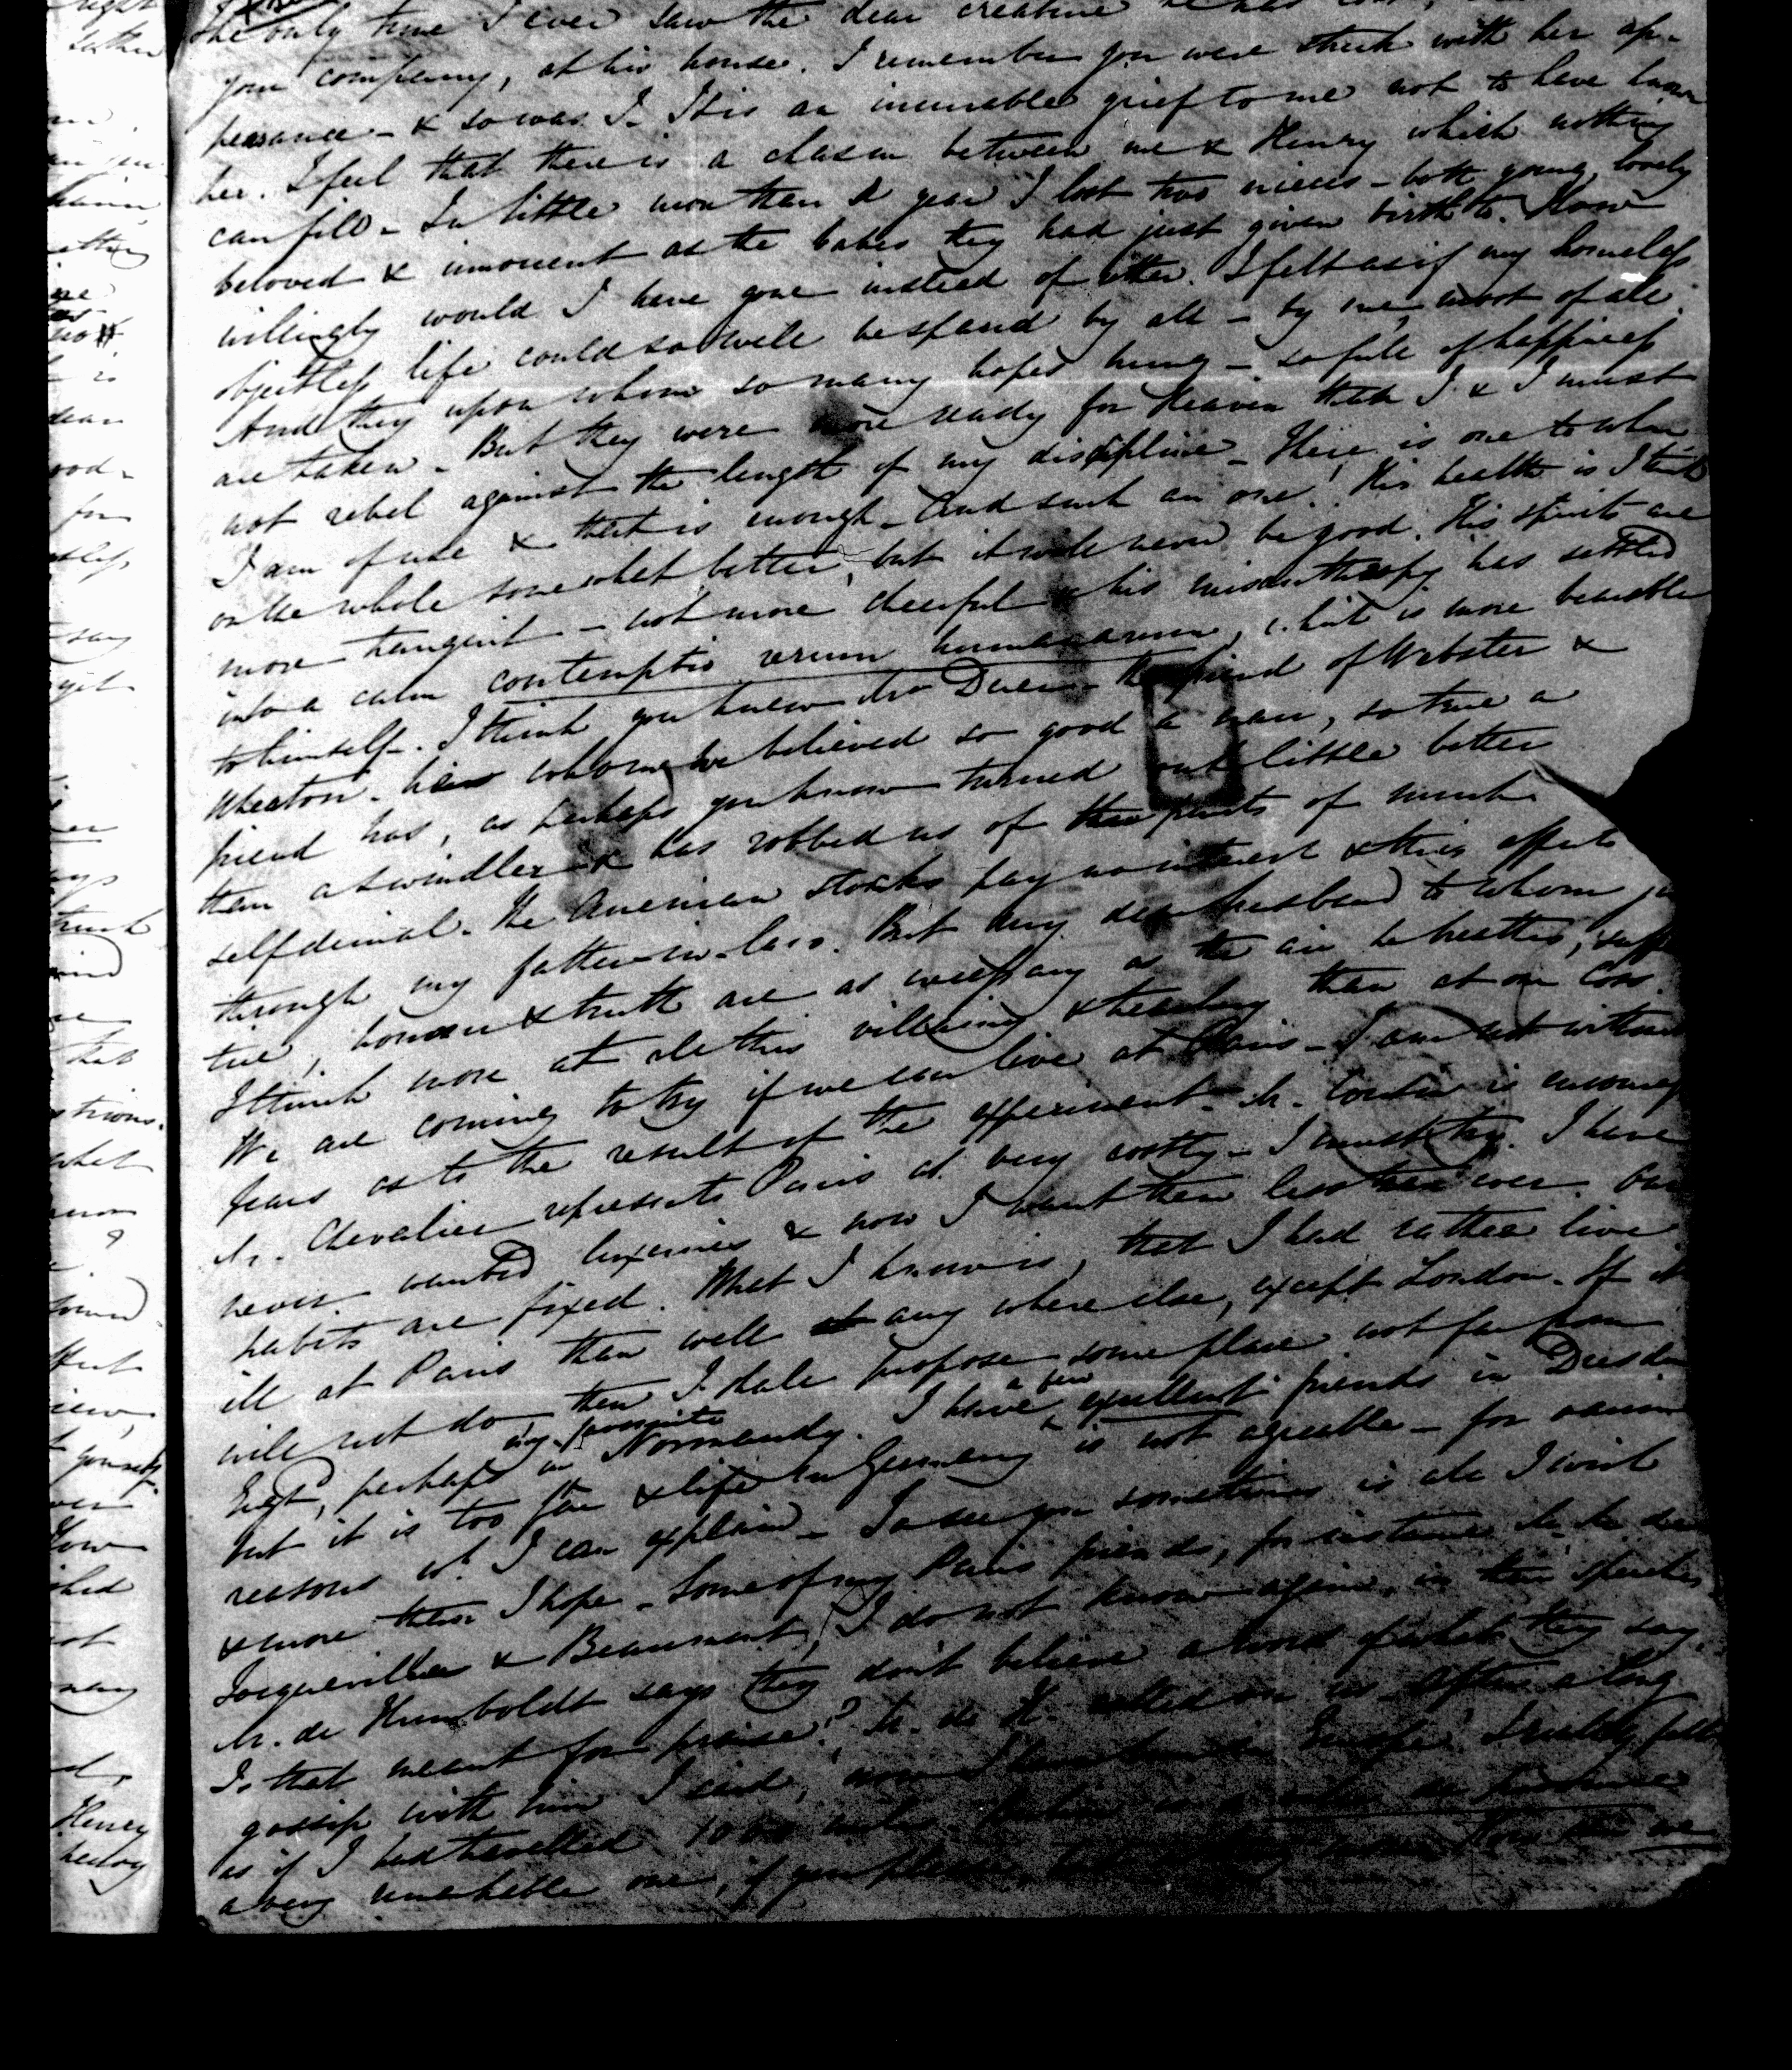 the only time I ever saw the dear creature he has lost,
your company, at his house. I remember you were struck with her ap-
pearance - & so was I. It is an incurable grief to me not to have known
her. I feel that there is a chasm between me & Henry which nothing
can fill - In little more than a year I lost two nieces - both young, lovely
beloved & innocent as the babes they had just given birth to. How
willingly would I have gone instead of either. I felt as if my homeless
objectless life could so well be spared by all - by me, most of all.
And they upon whom so many hopes hung - so full of happiness
are taken - But they were more ready for Heaven than I & I must
not rebel against the length of my discipline - Here is one to whom
I am of use & that is enough - And such an one! His health is I think
on the whole somewhat better, but it will never be good. His spirits are
more tranquil - not more cheerful his misanthropy has settled
into a calm contemptio rerum humanarum, which is more bearable
to himself. I think you knew Mr Duer - the friend of Webster &
Wheaton - whom we believed so good a man, so true a
friend has, as perhaps you know turned out little better
than a swindler & has robbed us of the fruits of much
self denial. The American stocks pay no interest & this affects
through my father-in-law. But my dear husband to whom
tue, honour & truth are as necessary as the air he breathes,
I think more at all this villainy & treachery than at our loss.
We are coming to try if we can live at Paris - I am not without
fears as to the result of the experiment - M. Cousin is
M. Chevalier represents Paris as very costly - I must try. I have
never wanted luxuries & now I want them less than ever. Our
habits are fixed. What I know is, that I had rather live
ill at Paris than well any where else, except London. If it
will not do then I shall propose some place not far from
perhaps in my favourite Normandy. I have a few excellent friends in Dresden
but it is too far & life in Germany is not agreeable - for various
reasons wh. I can explain - To see you sometimes is all I wish
& more than I hope - Some of my Paris friends, for instance M. de
Tocqueville & Beaumont, I do not know again, in their speeches
M. de Humboldt says they don't believe a word of what they say.
Is that meant for praise? M. de H. called on us - After a long
gossip with him I said, now I have been in Europe. I really felt
as if I had travelled 1000 miles. Berlin is a ville de province
a very remarkable one, if you please, but